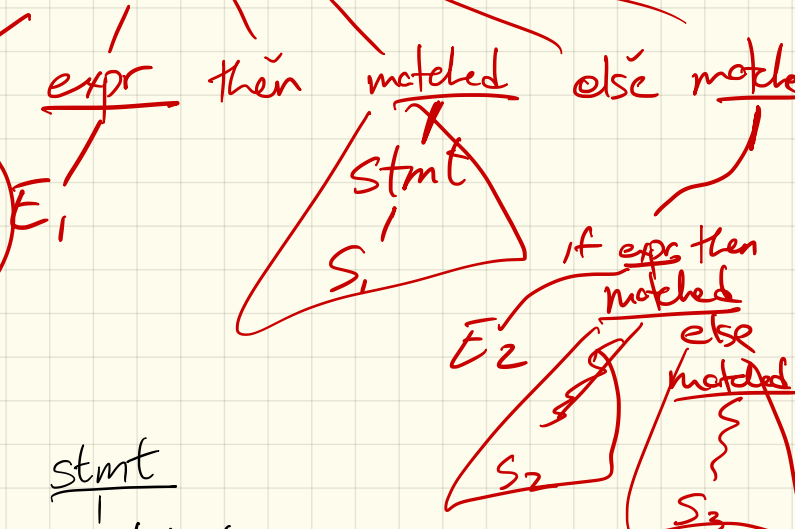 expr then matched else matche
stmt
E1
S1
if expr then
matched
else
E2
matched
S2
stmt
S3